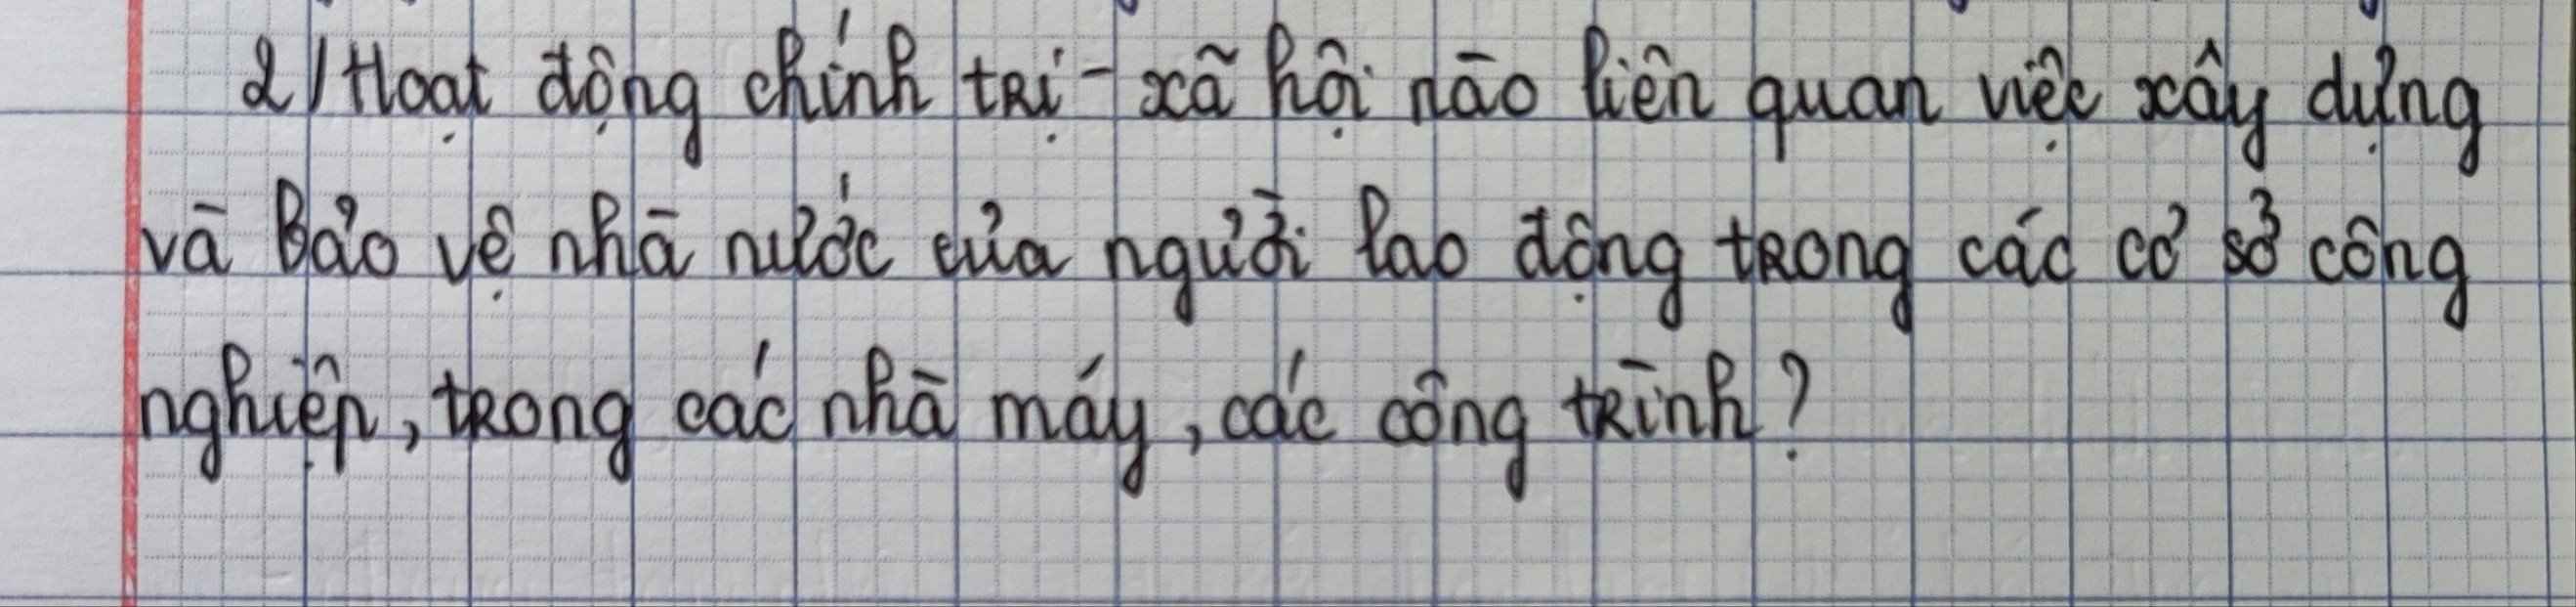 2/ Hoạt động chính trị - xã hội nào liên quan việc xây dựng
và bảo vệ nhà nước của người lao động trong các cơ sở công
nghiệp, trong các nhà máy, các công trình?